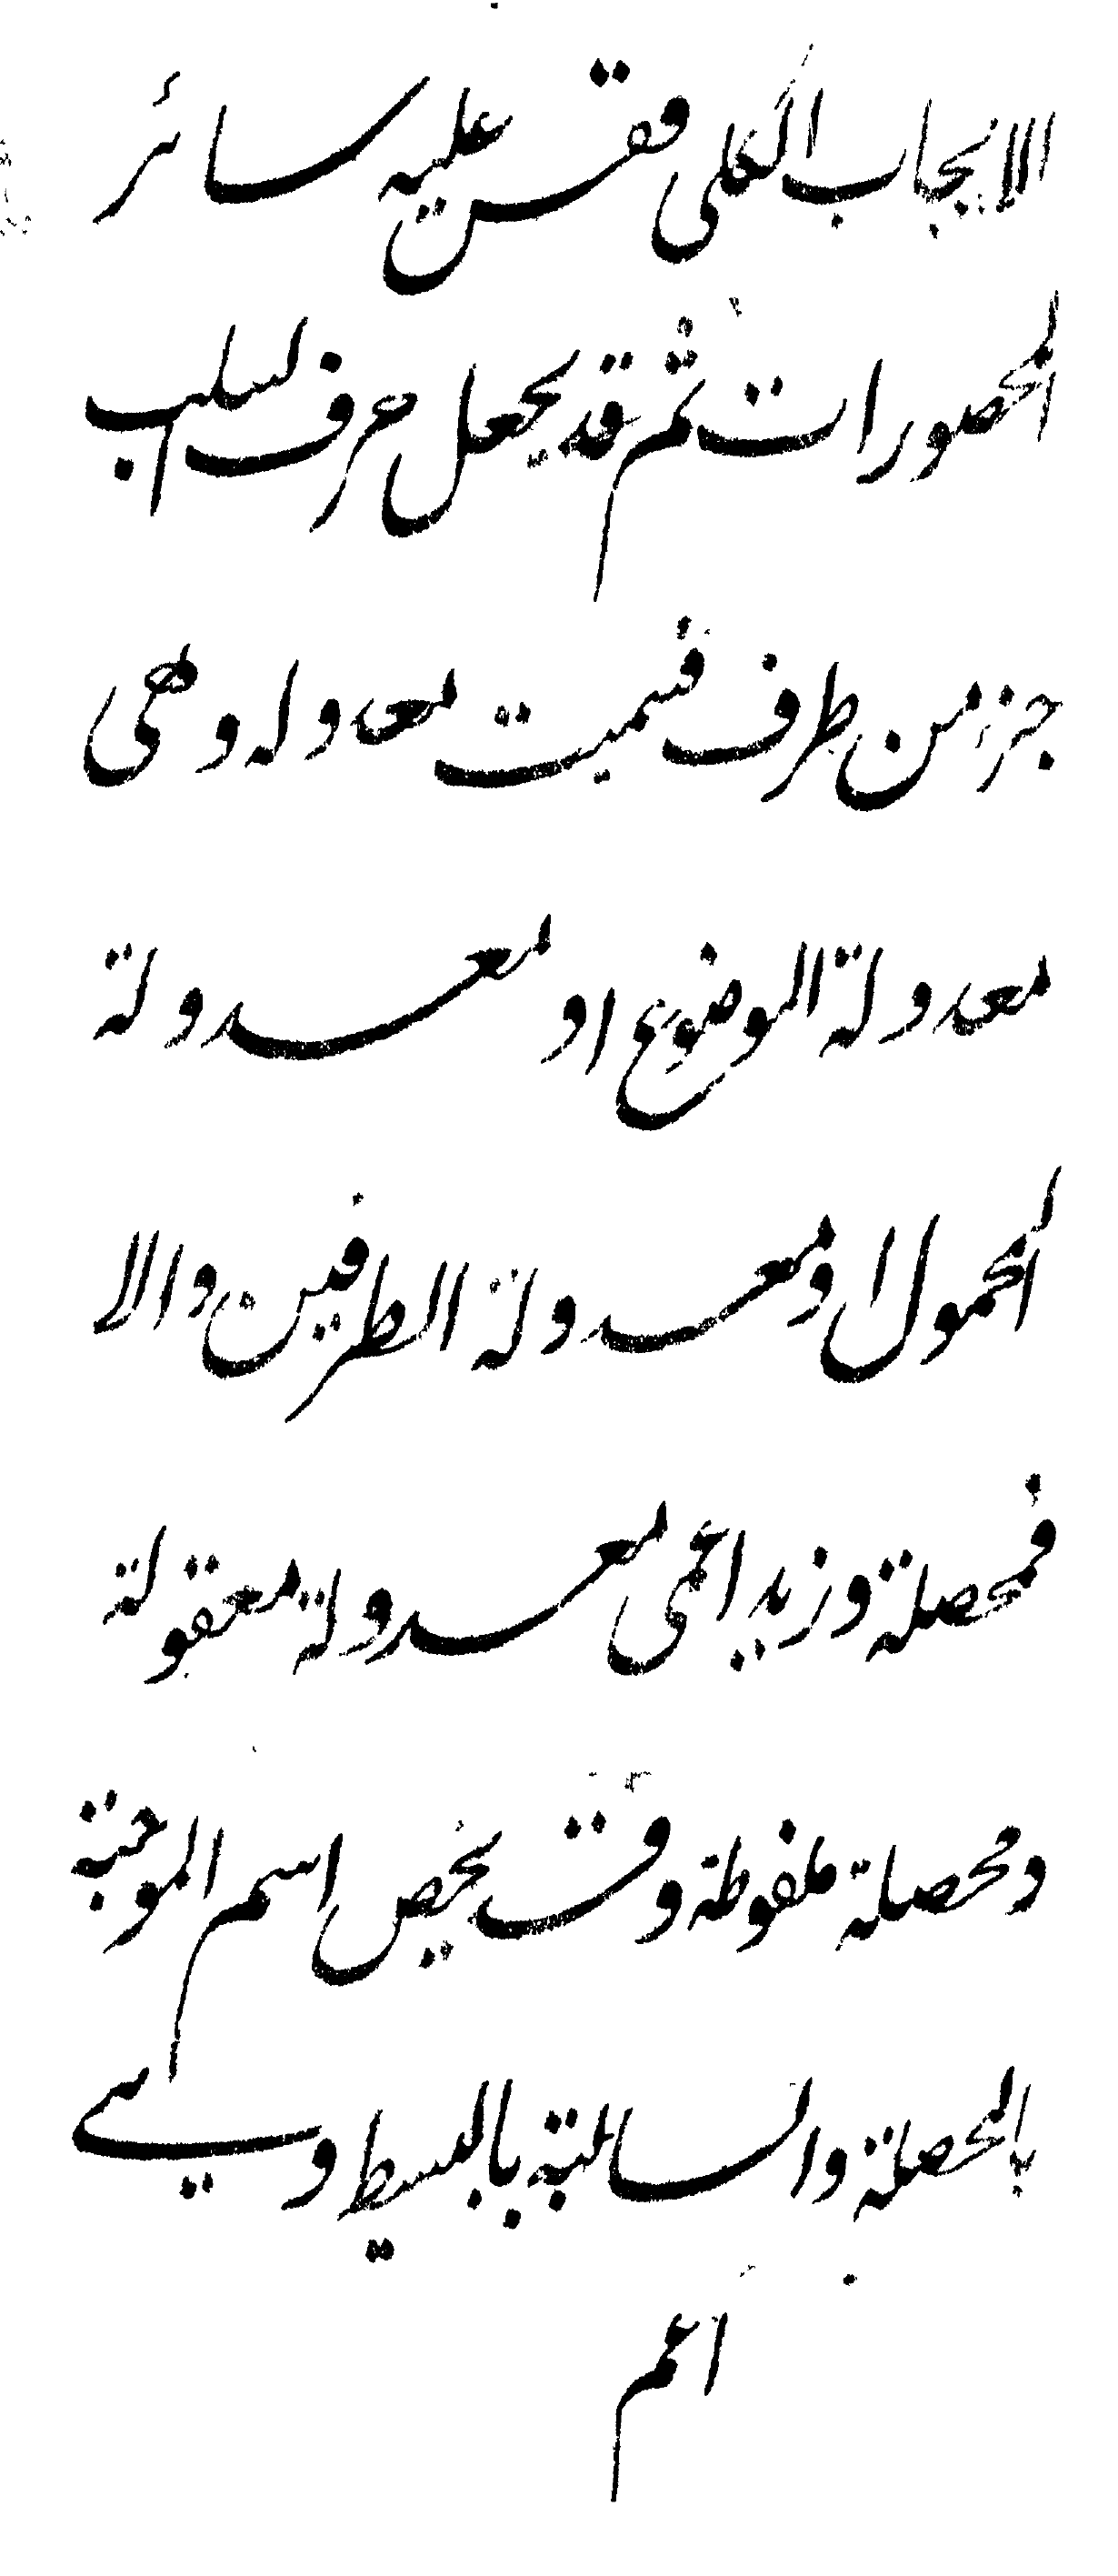 الايجاب الكلى فقس عليه سائر
المحصورات ثم قد يجعل حرف السلب
جزء من طرف فسميت معدوله وهى
معدولة الموضوع او معدولة
المحمول او معدولة الطرفين والا
فمحصلة وزيد اعمى معدولة معقولة
ومحصلة ملفوظة وقد يخص اسم الموجبة
بالمحصلة والسالبة بالبسيط وسي
اعم